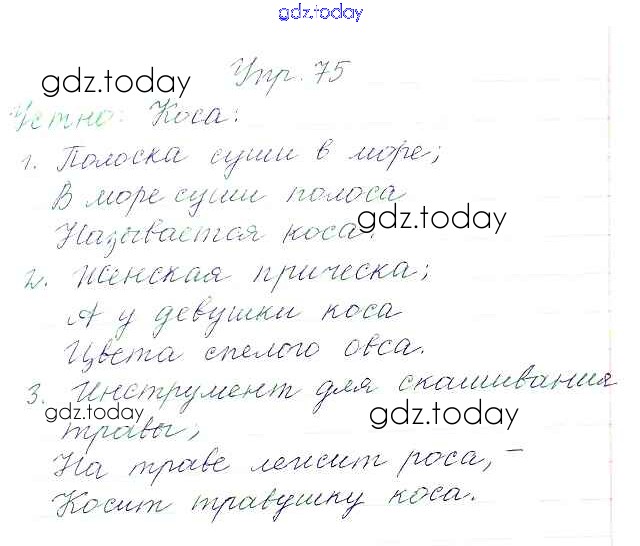 gdz.today
Упр. 75
gdz.today
Устно: Коса:
1. Полоска суши в море;
В море суши полоса
gdz.today
Называется коса.
2. Женская прическа;
А у девушки коса
Цвета спелого овса.
3. Инструмент для скашивания
gdz.today
gdz.today
травы;
На траве лежит роса, –
Косит травушку коса.